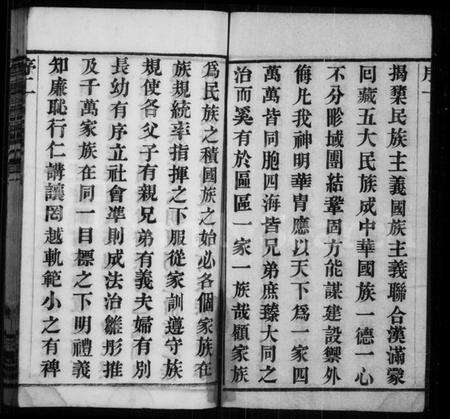 序一
揭櫫民族主義國族主義聯合漢滿蒙
回藏五大民族成中華國族一德一心
不分畛域團結鞏固方能謀建設禦外
侮凡我神明華胄應以天下爲一家四
萬萬皆同胞四海皆兄弟庶臻大同之
治而奚有於區區一家一族哉顧家族
爲民族之積國族之始必各個家族在
族規統率指揮之下服從家訓遵守族
規使各父子有親兄弟有義夫婦有別
長幼有序立社會準則成法治雛形推
及千萬家族在同一目標之下明禮義
知廉恥行仁講讓罔越軌範小之有裨
序二